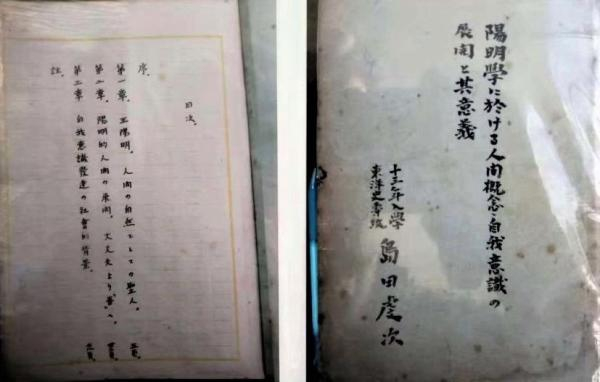 陽明學に於ける人間概念・自我意識の
展開と其意義
十三年入學
東洋史專攻
島田虔次
目次。
序。
第一章。王陽明。人間の自然としての聖人。
第二章。陽明的人間の展開。大丈夫より へ。
第三章 自我意識發達の社會的背景。
註。